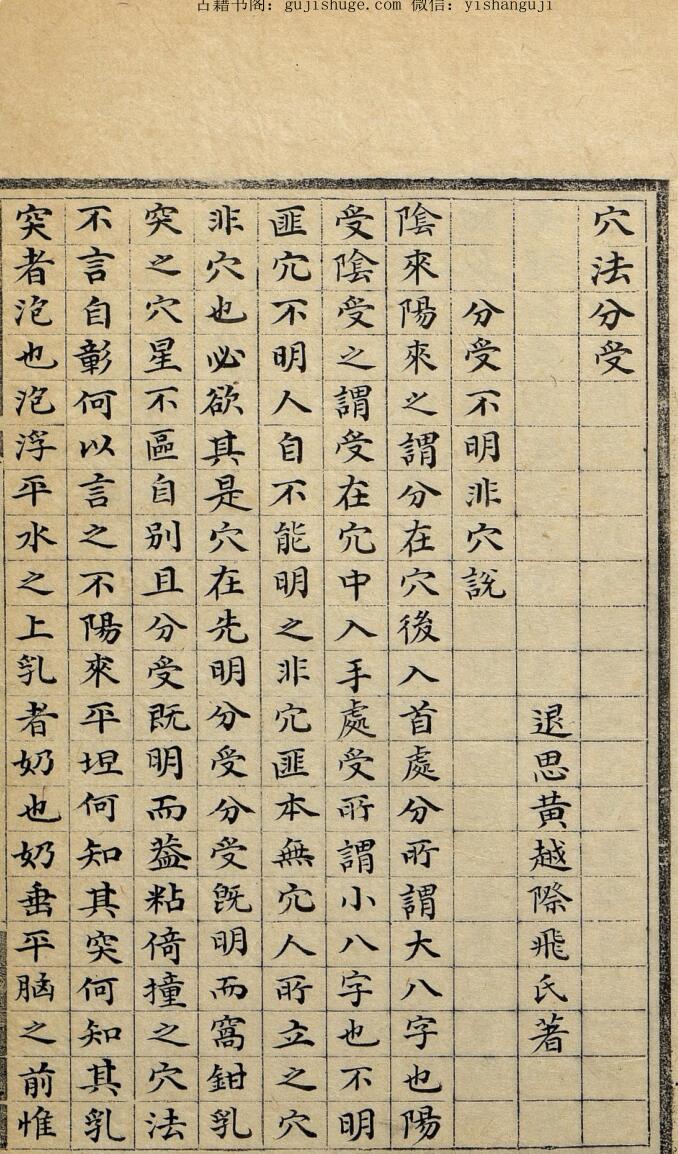 古籍书阁：gujishuge.com 微信：yishanguji
穴法分受
退思黃越際飛氏著
分受不明非穴説
陰來陽來之謂分在穴後入首處分所謂大八字也陽
受陰受之謂受在穴中入手處受所謂小八字也不明
匪穴不明人自不能明之非穴匪本無穴人所立之穴
非穴也必欲其是穴在先明分受分受既明而窩鉗乳
突之穴星不區自别且分受既明而葢粘倚撞之穴法
不言自彰何以言之不陽來平坦何知其突何知其乳
突者泡也泡浮平水之上乳者奶也奶垂平胸之前惟